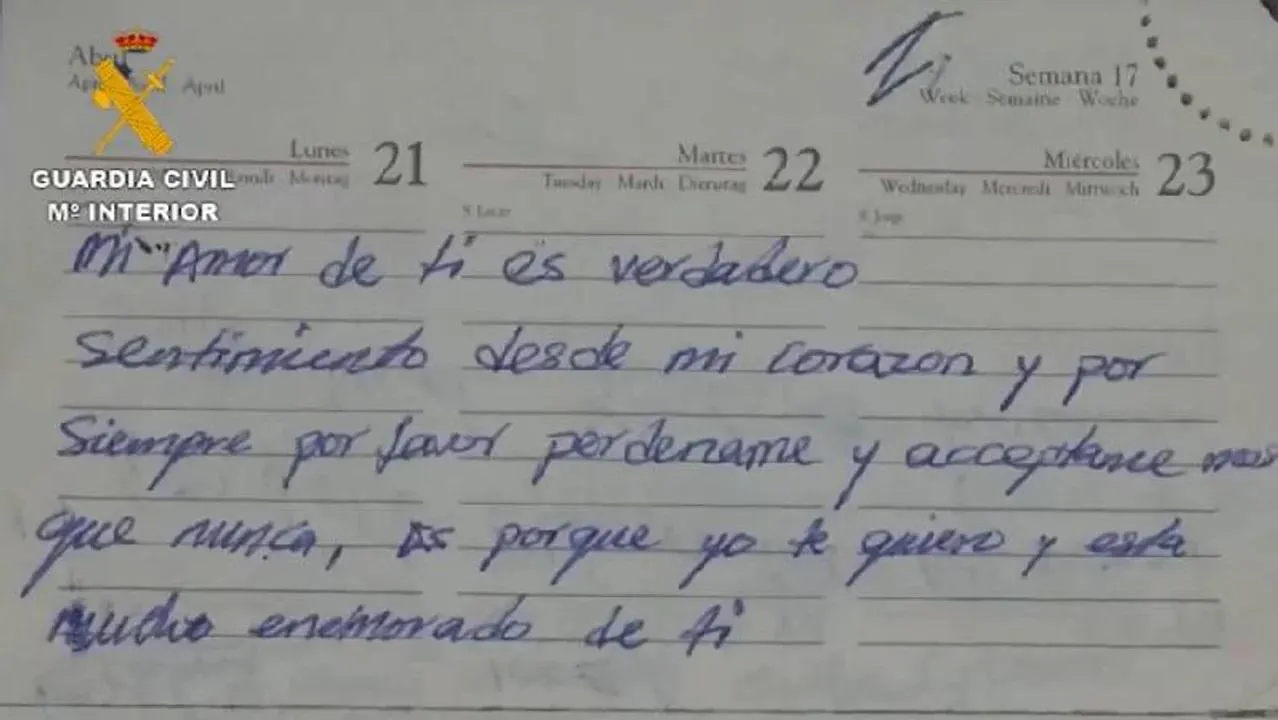 Abril
April
Semana 17
Week Semaine Woche
Lunes 21
Montag
Martes 22
Tuesday Mardi Dienstag
Miércoles 23
Wednesday Mercredi Mittwoch
S. Jorge
GUARDIA CIVIL
Mº INTERIOR
Mi Amor de ti es verdadero
Sentimiento desde mi corazon y por
Siempre por favor perdename y acceptame mas
que nunca, es porque yo te quiero y esta
mucho enemorado de ti